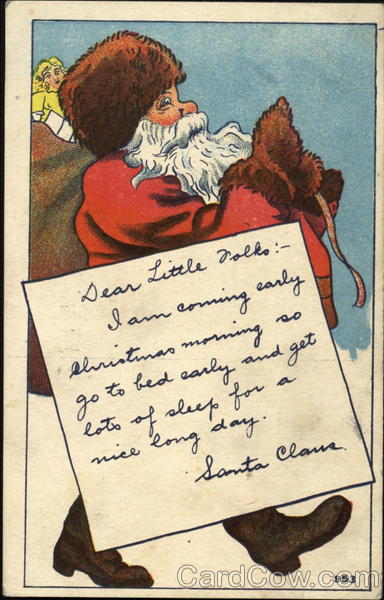 Dear Little Folks:-
I am coming early
Christmas morning so
go to bed early and get
lots of sleep for a
nice long day.
Santa Claus.
953
CardCow.com